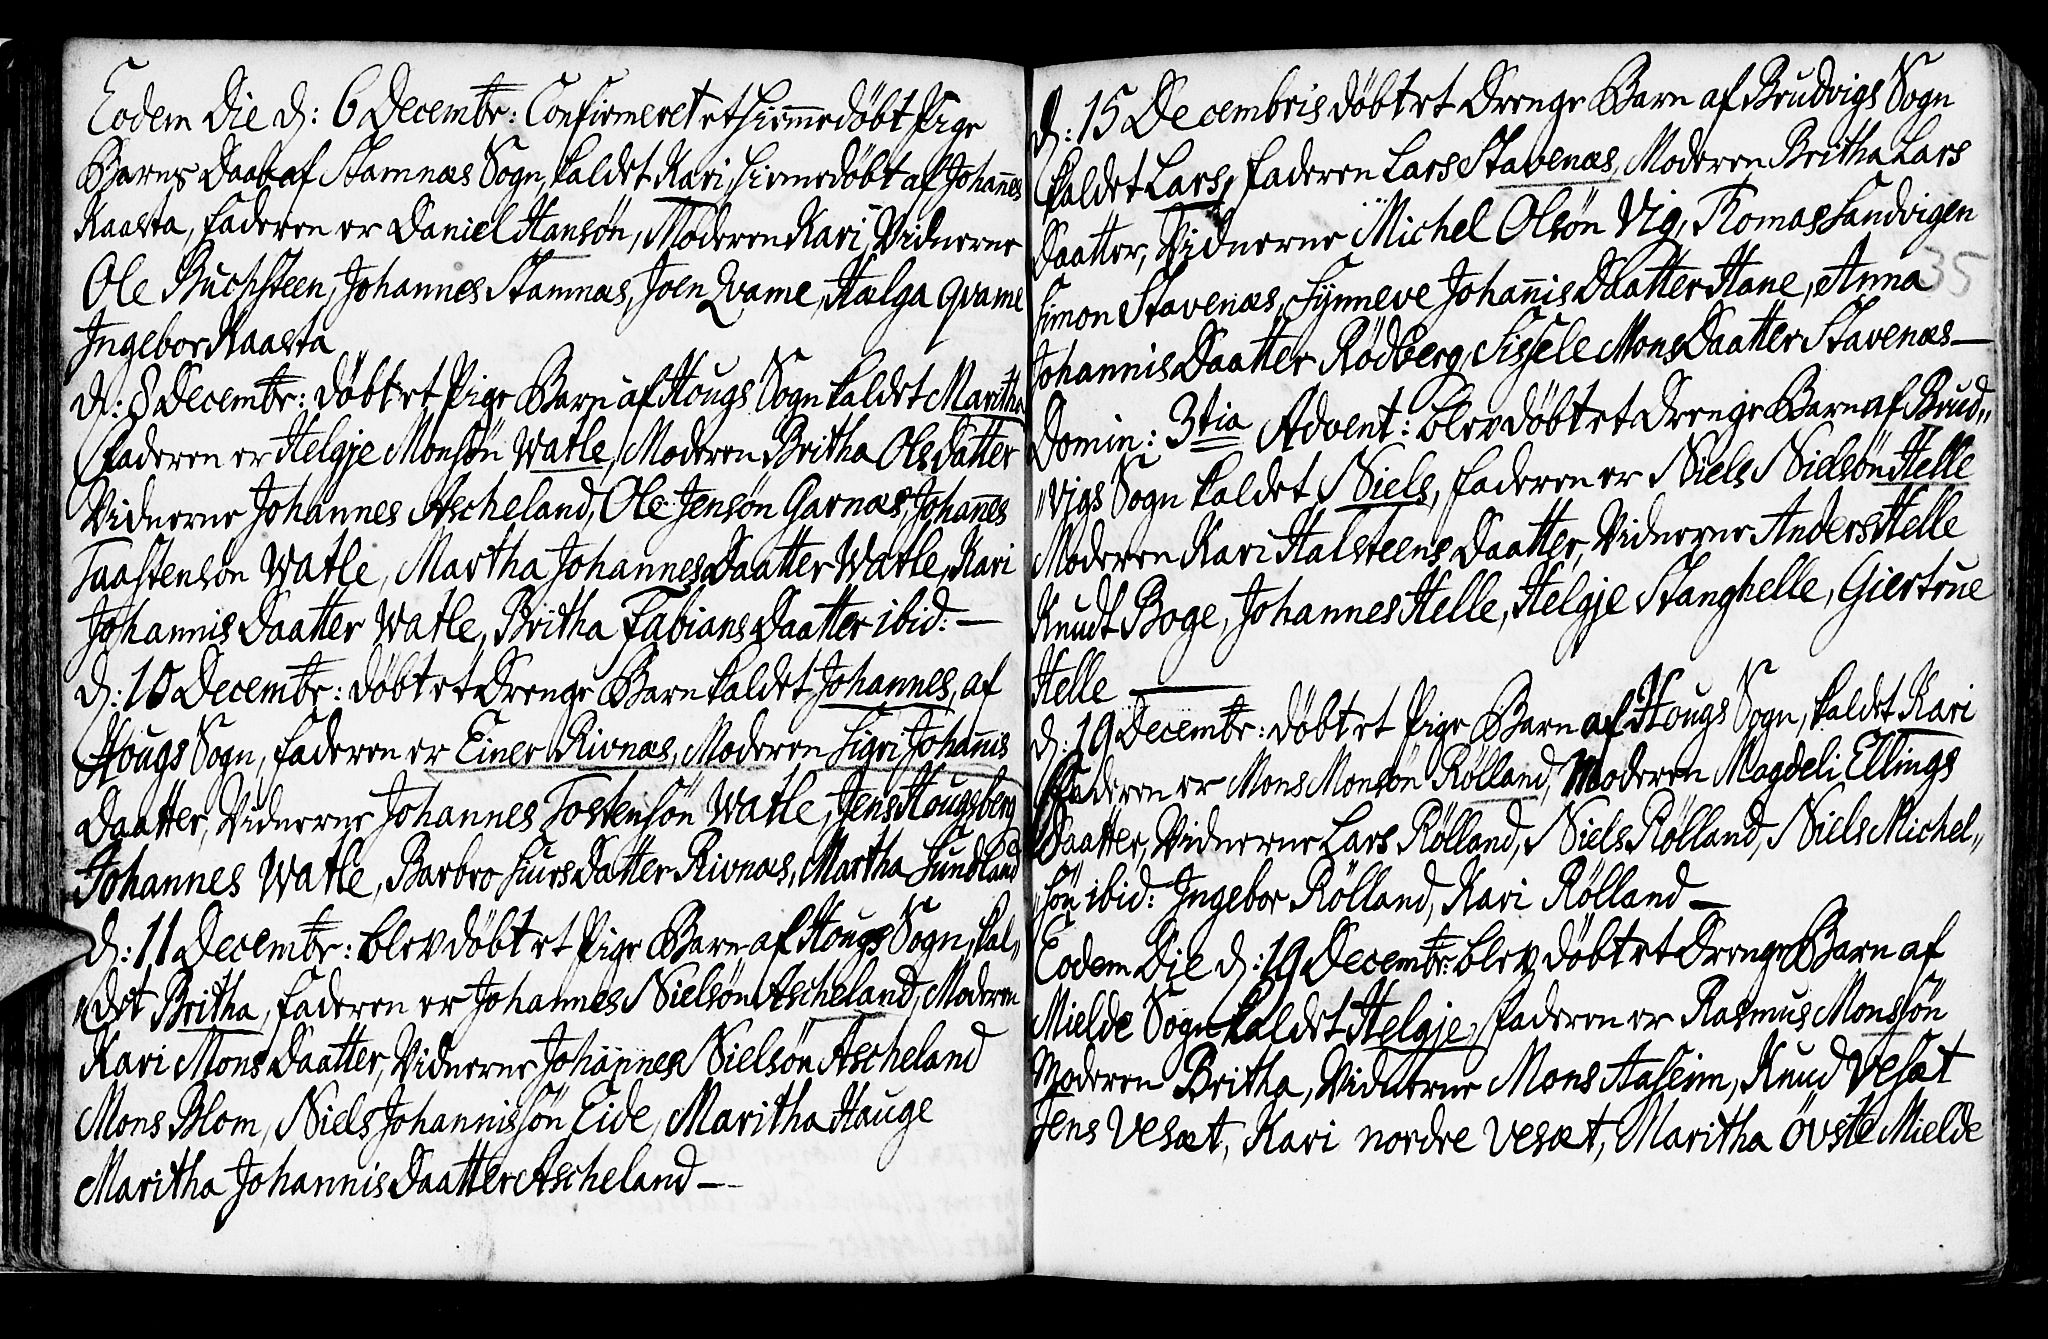 Eodem Die d: 6 Decembr: Confirmeret et hiemmedöbt Pige
Barns Daab af Stamnæs Sogn, kaldet Kari, hiemedöbt af Johañes
Kaasta, faderen er Daniel Hansön, Moderen Kari, Vidnerne
Ole Buchsteen, Johannes Stamnæs, Joen Qvame, Hælga Qvame
Ingebor Kaasta
d: 8 Decembr: döbt et Pige Barn af Hougs Sogn kaldet Maritha
faderen er Helgje Monsön Watle, Moderen Britha Olsdatter
Vidnerne Johannes Ascheland, Ole Jensön Garnæs, Johañes
Taastensön Watle, Martha JohannesDaatter Watle, Kari
Johannis Daatter Watle, Britha Fabians Daatter ibid: —
d: 10 Decembr: döbt et Drenge Barn kaldet Johannes, af
Hougs Sogn, faderen er Einer Rivnæs, Moderen Sigri Johañis
Daatter, Vidnerne Johannes Tostensön Watle, Jens Hougsberg
Johannes Watle, Barbro Siurs Datter Rivnæs, Martha Sundland
d: 11 Decembr: blev döbt et Pige Barn af Hougs Sogn, kal„
„det Britha, faderen er Johannes Nielsön Ascheland, Moderen
Kari Mons Daatter, Vidnerne Johañnes Nielsön Ascheland
Mons Blom, Niels Johannissön Eide, Maritha Hauge
Maritha Johannis Daatter Ascheland —
d: 15 Decembris döbt et Drenge Barn af Brudvigs Sogn
kaldet Lars, faderen Lars Stavenæs, Moderen Britha Lars
Daatter, Vidnerne Michel Olsön Vig, Thomas Sandvigen
Simon Stavenæs, Synneve Johañis Daatter Hane, Anna
35
Johannis Daatter Rödberg, Sissele Mons Daatter Stavenæs —
Domin: 3tia Advent: blev döbt et Drenge Barn af Brud„
„vigs Sogn kaldet Niels, faderen er Niels Nielsön Helle
Moderen Kari Halsteens Daatter, Vidnerne Anders Helle
Knudt Boge, Johannes Helle, Helgje Stanghelle, Giertrue
Helle —
d: 19 Decembr: döbt et Pige Barn af Hougs Sogn, kaldet Kari
Faderen er Mons Monsön Rölland, Moderen Magdeli Ellings
Daatter, Vidnerne Lars Rölland, Niels Rölland, Niels Michel„
„sön ibid: Ingebor Rölland, Kari Rölland —
Eodem Die d: 19 Decembr: blev döbt et Drenge Barn af
Mielde Sogn kaldet Helgje, faderen er Rasmus Monssön
Moderen Britha, Vidnerne Mons Aaseim, Knud Vesæt
Jens Vesæt, Kari nordre Vesæt, Maritha övste Mielde